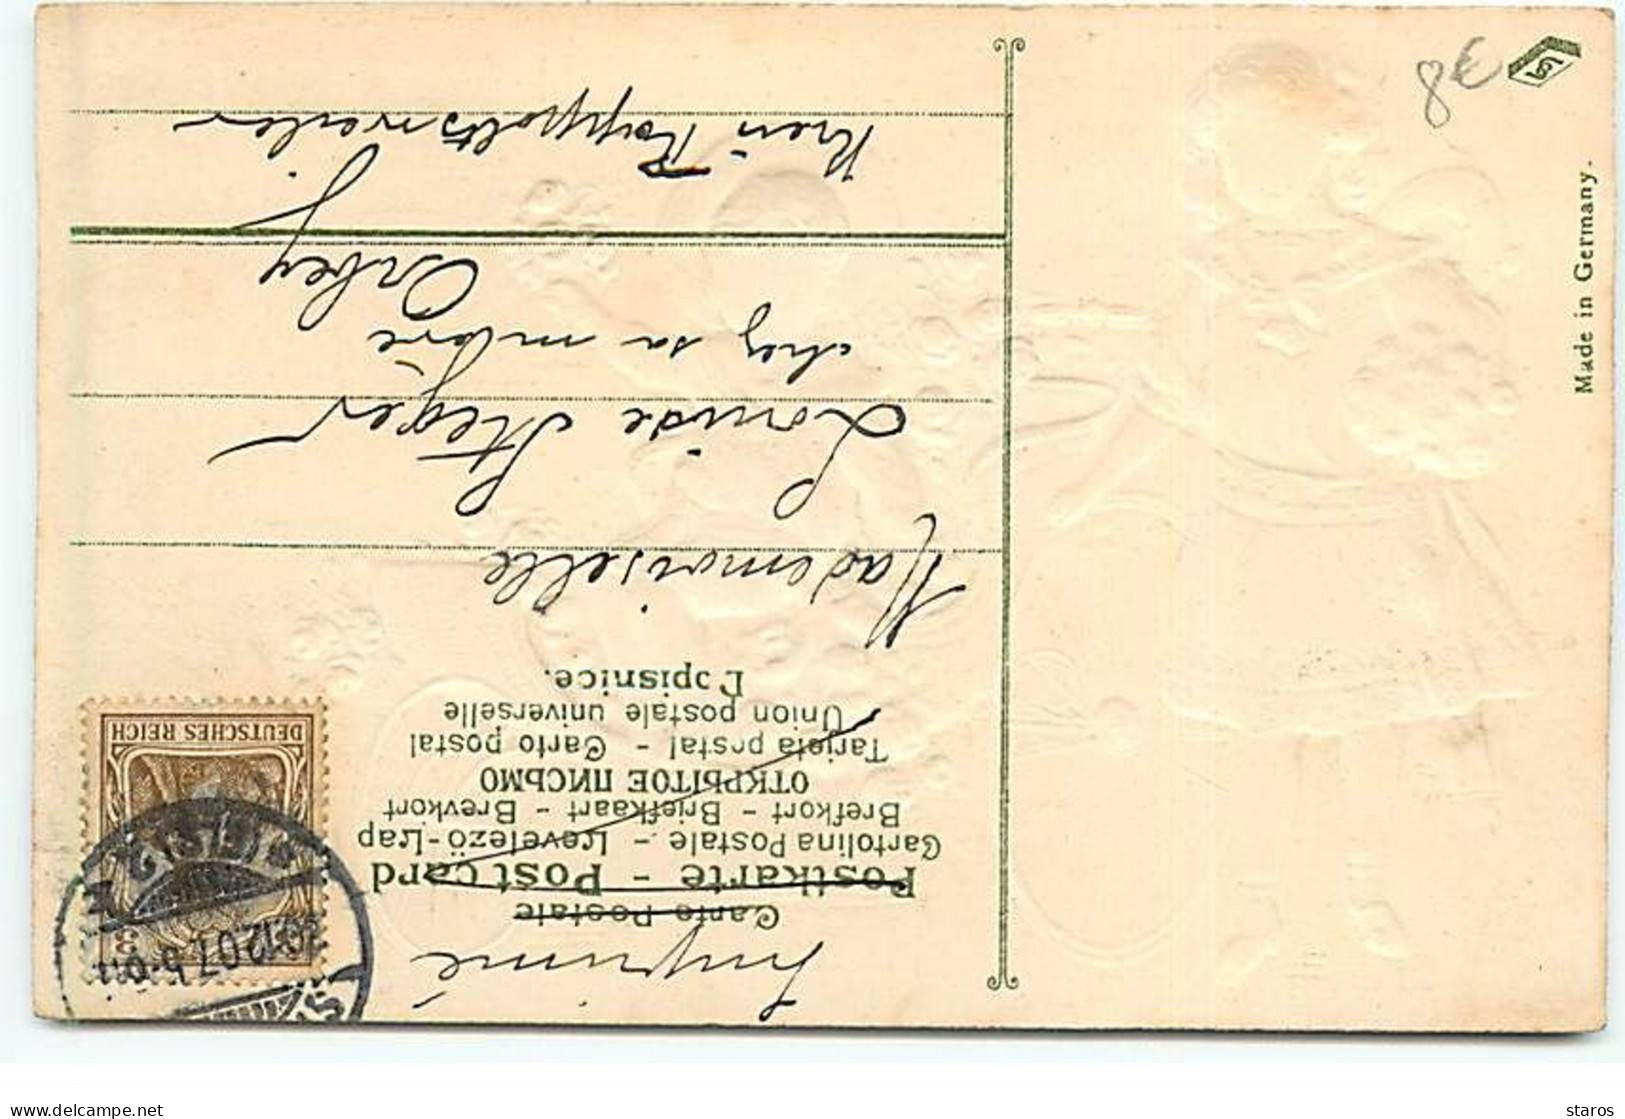 Imprimé
Carte Postale
Postkarte - Post card
Cartolina Postale. - Levelező-Lap
Brefkort - Briefkaart - Brevkort
ОТКРЫТОЕ ПИСЬМО
Tarjeta postal - Carto postal
Union postale universelle
Dopisnice.
Mademoiselle
Louise Steger
chez sa mère
Orbey
Kreis Rappoltsweiler
DEUTSCHES REICH
3
26.12.07. 5-6N
Made in Germany.
8€
delcampe.net
staros